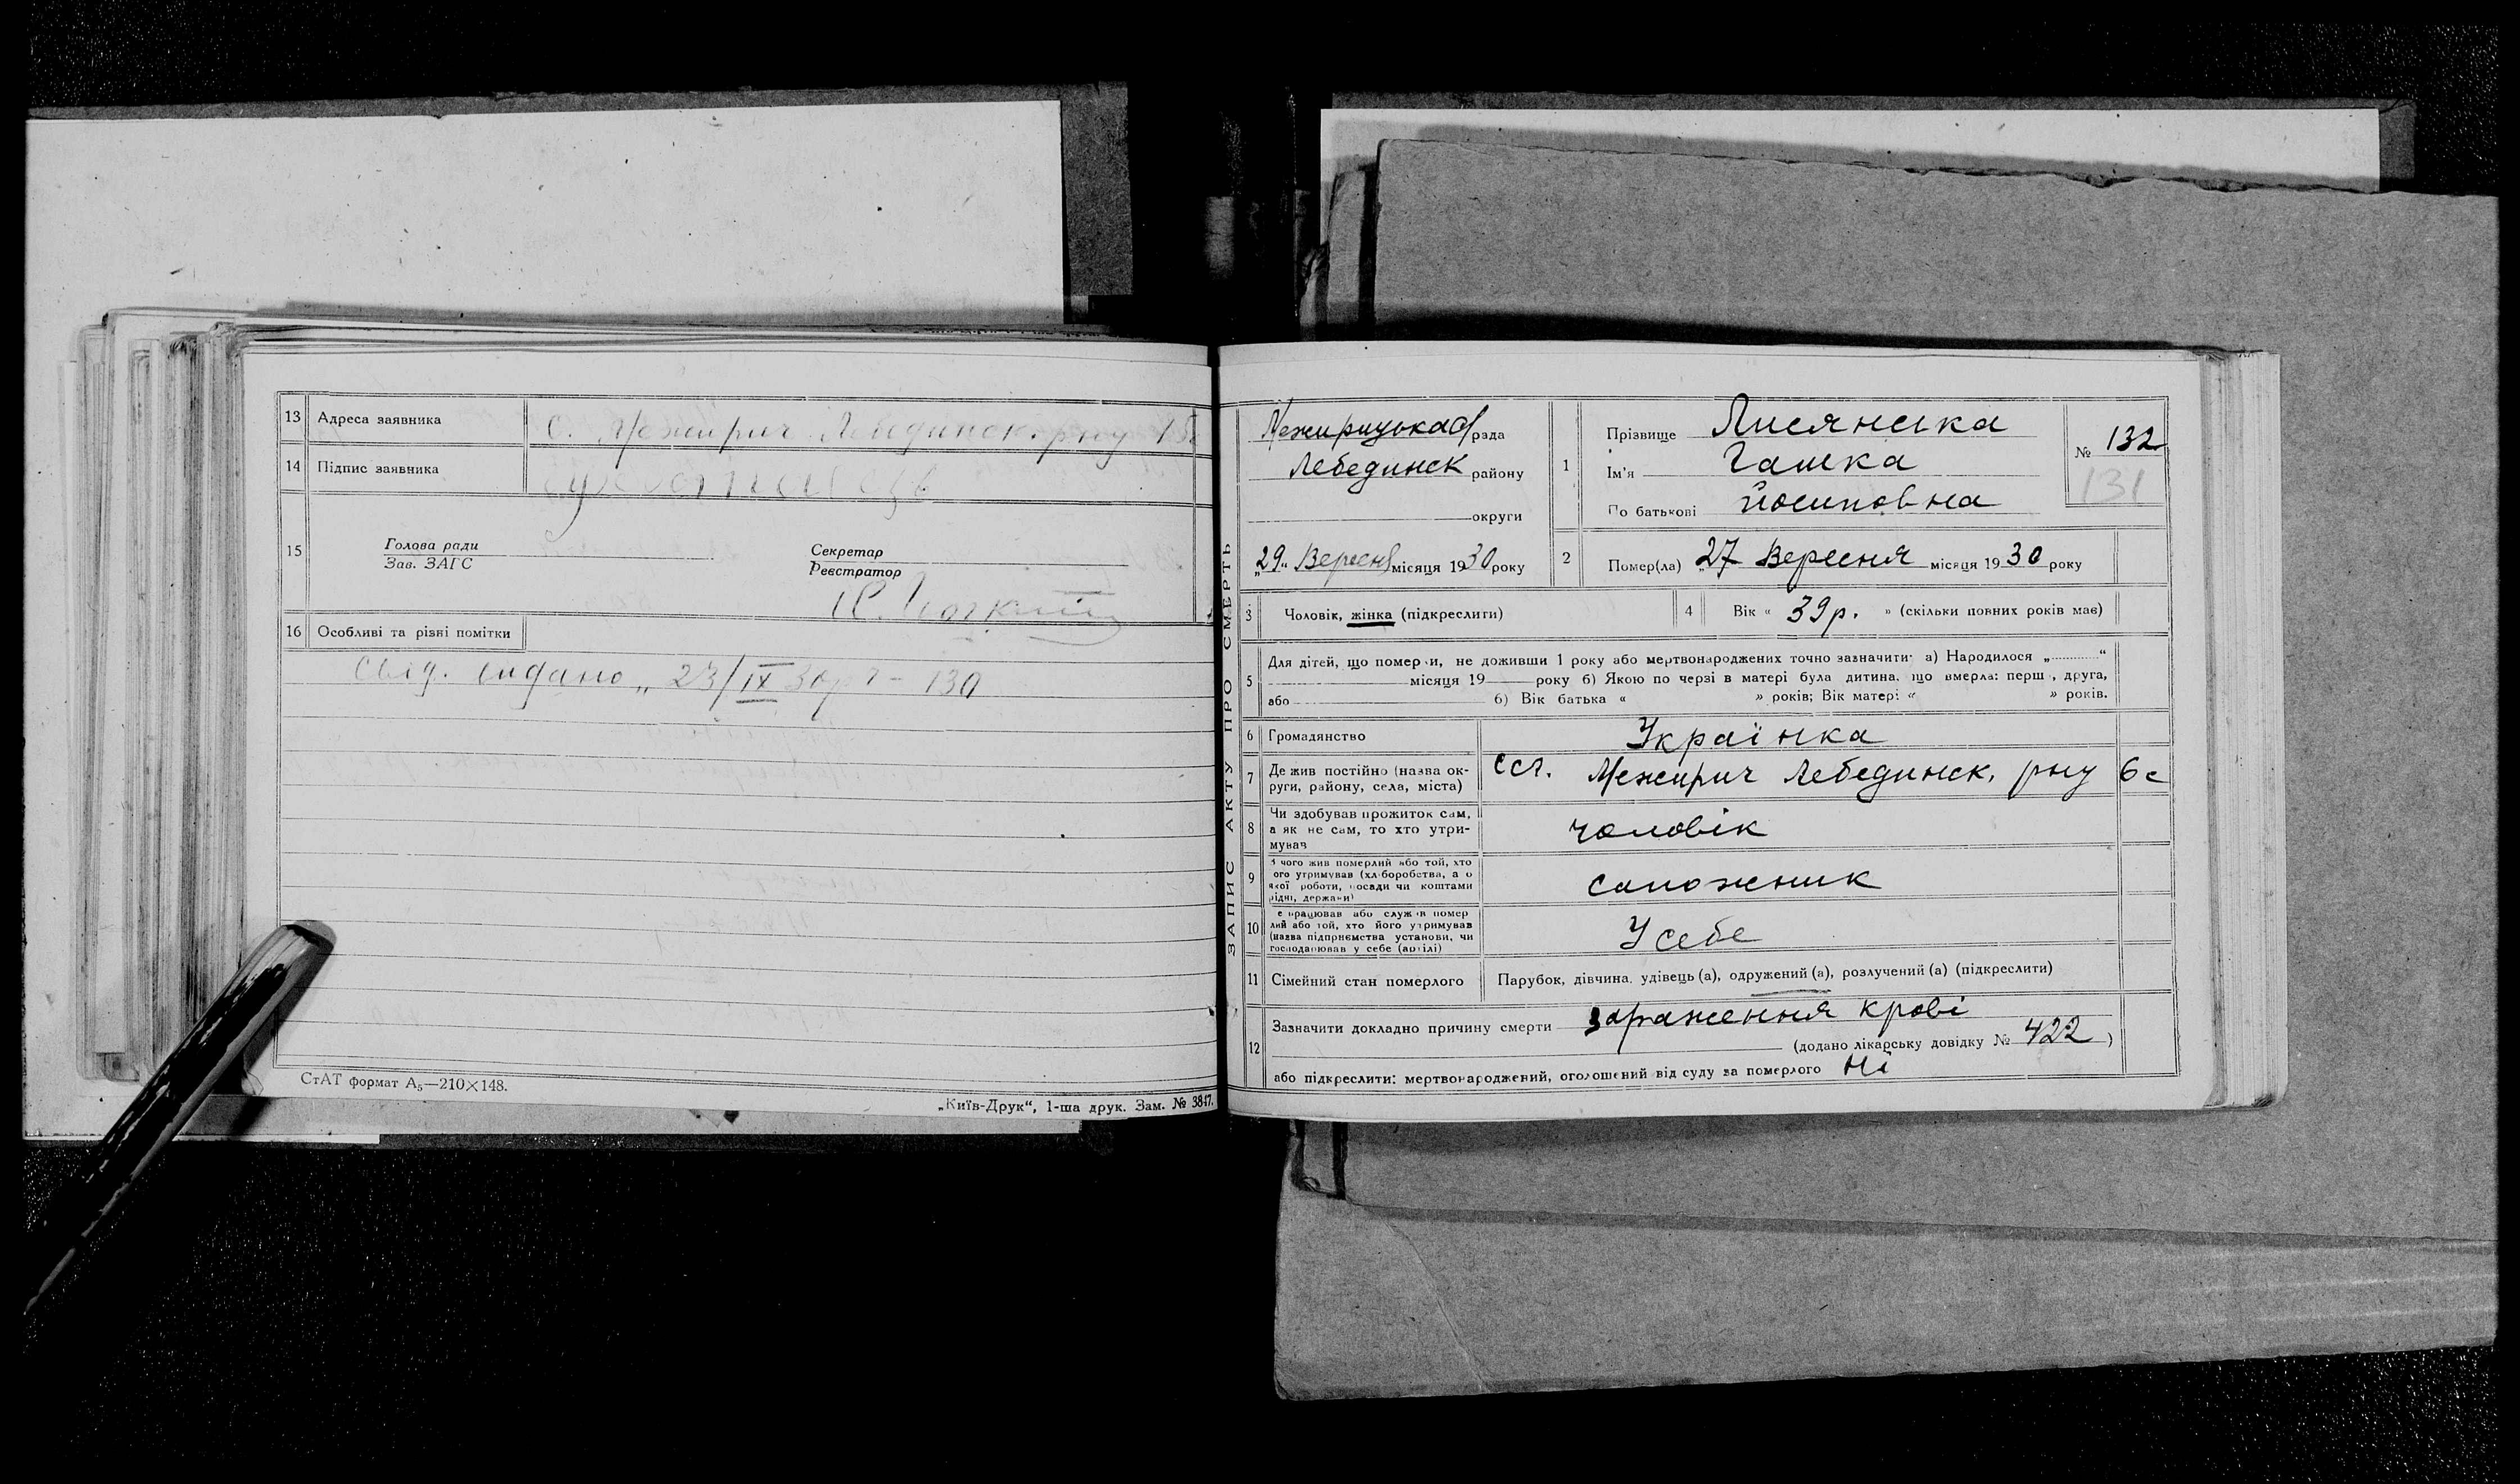 13 Адреса заявника с. Межирич Лебединск. рну
14 Підпис заявника
15 Голова ради
Зав. ЗАГС
Секретар
Реєстратор
16 Особливі та різні помітки
свід. видано „ 23/IX 30р
СтАТ формат А₅—210×148.
„Київ-Друк“, 1-ша друк. Зам. № 3847.
ЗАПИС АКТУ ПРО СМЕРТЬ
Межирицька с/рада
Лебединск району
округи
„29“ Вересня місяця 1930 року
1 Прізвище Лисянська
Ім'я Гашка
По батькові Йосиповна
№ 132
131
2 Помер(ла) „27 Вересня місяця 1930 року
3 Чоловік, жінка (підкреслити)
4 Вік « 39 р. » (скільки повних років має)
5 Для дітей, що померли, не доживши 1 року або мертвонароджених точно зазначити: а) Народилося „ “
місяця 19 року б) Якою по черзі в матері була дитина, що вмерла: перш , друга,
або б) Вік батька « » років; Вік матері « » років.
6 Громадянство Українка
7 Де жив постійно (назва ок-
руги, району, села, міста) Межирич Лебединск. рну 6с
8 Чи здобував прожиток сам,
а як не сам, то хто утри-
мував чоловік
9 З чого жив померлий або той, хто
ого утримував (хліборобства, а о
якої роботи, посади чи коштами
рідні, держави) сапожник
10 е працював або служив помер
лий або той, хто його утримував
(назва підприємства установи, чи
господарював у себе (артілі) У себе
11 Сімейний стан померлого Парубок, дівчина, удівець (а), одружений (а), розлучений (а) (підкреслити)
12 Зазначити докладно причину смерти зараження крові
(додано лікарську довідку № 422 )
або підкреслити: мертвонароджений, оголошений від суду за померлого Ні